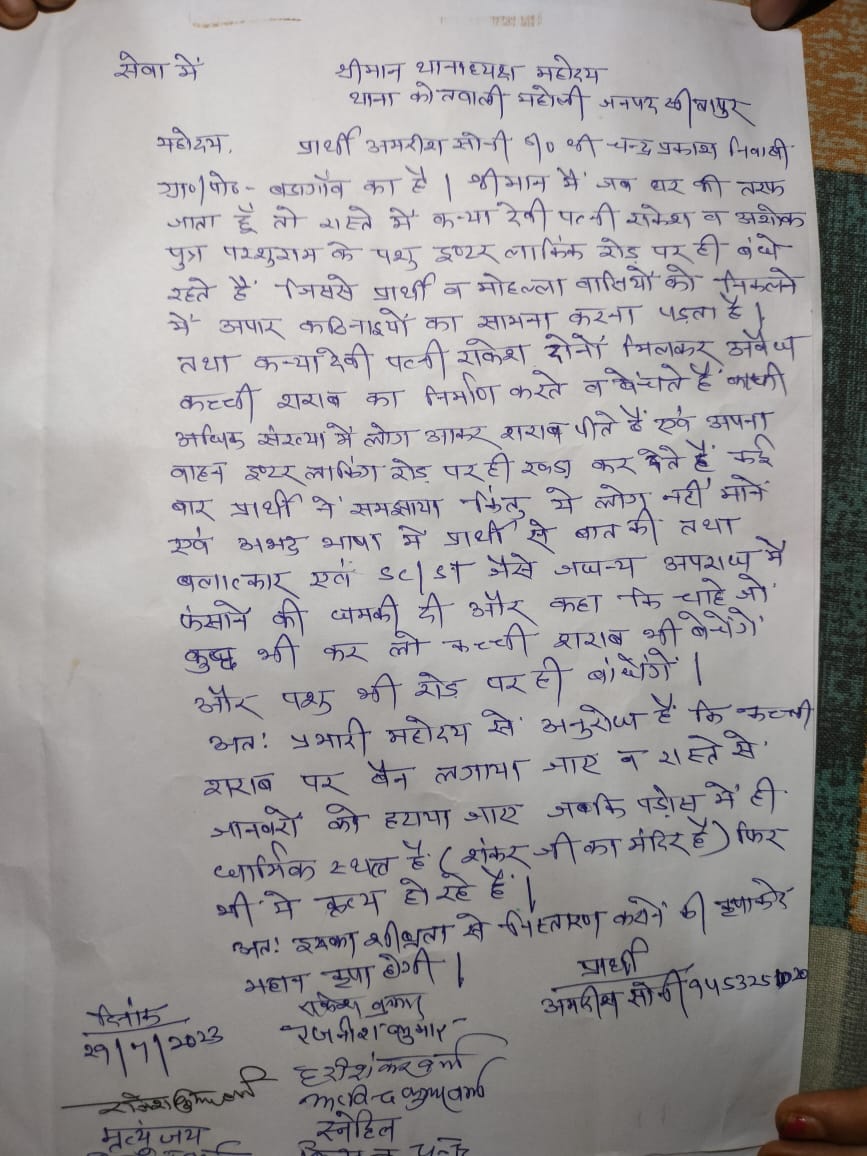 सेवा में
श्रीमान थानाध्यक्ष महोदय
थाना कोतवाली महोली जनपद सीतापुर
महोदय, प्रार्थी अमरीश सोनी s/o श्री चन्द्र प्रकाश निवासी
ग्रा०/पो०- बडागाँव का है । श्रीमान मैं जब घर की तरफ
जाता हूँ तो रास्ते में कन्या देवी पत्नी राकेश व अशोक
पुत्र परशुराम के पशु इण्टर लाकिंक रोड़ पर ही बंधे
रहते हैं जिससे प्रार्थी व मोहल्ला वासियों को निकलने
में अपार कठिनाइयों का सामना करना पड़ता है ।
तथा कन्यादेवी पत्नी राकेश दोनों मिलकर अवैध
कच्ची शराब का निर्माण करते व बेंचते हैं काफी
अधिक संख्या में लोग आकर शराब पीते हैं एवं अपना
वाहन इण्टर लाकिंग रोड़ पर ही खड़ा कर देते हैं कई
बार प्रार्थी ने समझाया किंतु ये लोग नहीं माने
एवं अभद्र भाषा में प्रार्थी से बात की तथा
बलात्कार एवं SC/ST जैसे जघन्य अपराध में
फंसाने की धमकी दी और कहा कि चाहे जो
कुछ भी कर लो कच्ची शराब भी बेचेंगे
और पशु भी रोड़ पर ही बांधेंगे ।
अतः प्रभारी महोदय से अनुरोध है कि कच्ची
शराब पर बैन लगाया जाए व रास्ते से
जानवरों को हटाया जाए जबकि पड़ोस में ही
धार्मिक स्थल है (शंकर जी का मंदिर है) फिर
भी ये कृत्य हो रहे हैं ।
अतः इसका शीघ्रता से निस्तारण करने की कृपा करें
महान कृपा होगी ।
प्रार्थी
अमरीश सोनी
दिनांक
29/7/2023
राकेश कुमार
रजनीश कुमार
हरीशंकर वर्मा
मृत्युंजय
स्नेहिल